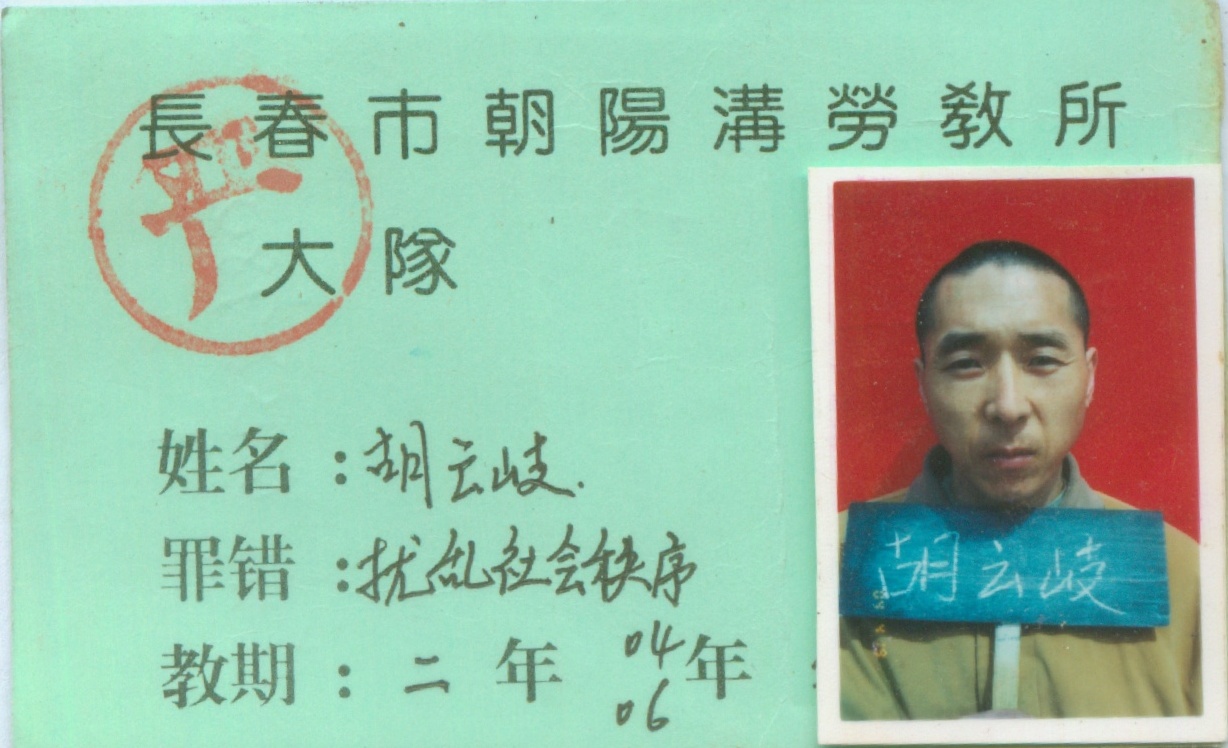 長春市朝陽溝勞教所
大隊
姓名：胡云岐.
罪错：扰乱社会秩序
教期：二年 04年
06
胡云岐